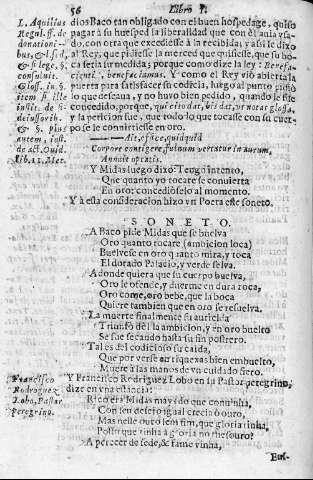 56 Libro I.
L. Aquilius
Regul. ff. de
donationi-
bus, & l. si d,
& si lege, §.
consuluit.
Gloss. in §.
item si ille
instit. §.
de iussorib.
& §. plus
autem, inst.
de act. Ouid.
Lib. 11. Met.
dios Baco tan obligado con el buen hospedage, quiso
pagar a su huesped la liberalidad que con el auia vsa-
do, con otra que excediesse à la recibida; y assi le dixo
al Rey, que pidiesse la merced que quisiesse, que su bo
ca seria su medida; porque como dize la ley: Benefa-
cienti, benefaciamus. Y como el Rey vió abierta la
puerta para satisfacer su codicia, luego al punto pidió
lo que deseaua, y no huuo bien pedido, quando le fue
concedido, porque, qui cito dat, bis dat,
y la peticion fue, que todo lo que tocasse con su cuer-
po se conuirtiesse en oro.
Ait, effice, quidquid
Corpore contigero, fuluum vertatur in aurum,
Annuit optatis.
Y Midas luego dixo: Tengo intento,
Que quanto yo tocare se conuierta
En oro: concedióselo al momento.
Y à esta consideracion hizo vn Poeta este soneto.
SONETO.
A Baco pide Midas que se buelva
Oro quanto tocare (ambicion loca)
Buelvese en oro quanto mira, y toca
El dorado Palacio, y verde selva.
Adonde quiera que su cuerpo buelva,
Oro le ofende, y duerme en dura toca,
Oro come, oro bebe, que la boca
Quiere tambien que en oro se resuelva.
La muerte finalmente su auaricia
Triunfò de la ambicion, y en oro buelto
Se fue secando hasta su fin postrero.
Tal es del codicioso su caida,
Que por verse en riquezas bien embuelto,
Muere à las manos de vn cuidado fiero.
Francisco
Rodrigues
Lobo, Pastor
peregrino.
Y Francisco Rodriguez Lobo en su Pastor peregrino,
dize en vna estancia:
Rico era Midas mays do que conuinha,
Con seu desejo igual crecia ò ouro,
Mas nelle ouro sem fim, que gloria tinha,
Posto que tinha à gloria no thesouro?
A perecer de sede, & fame vinha,
Eus-